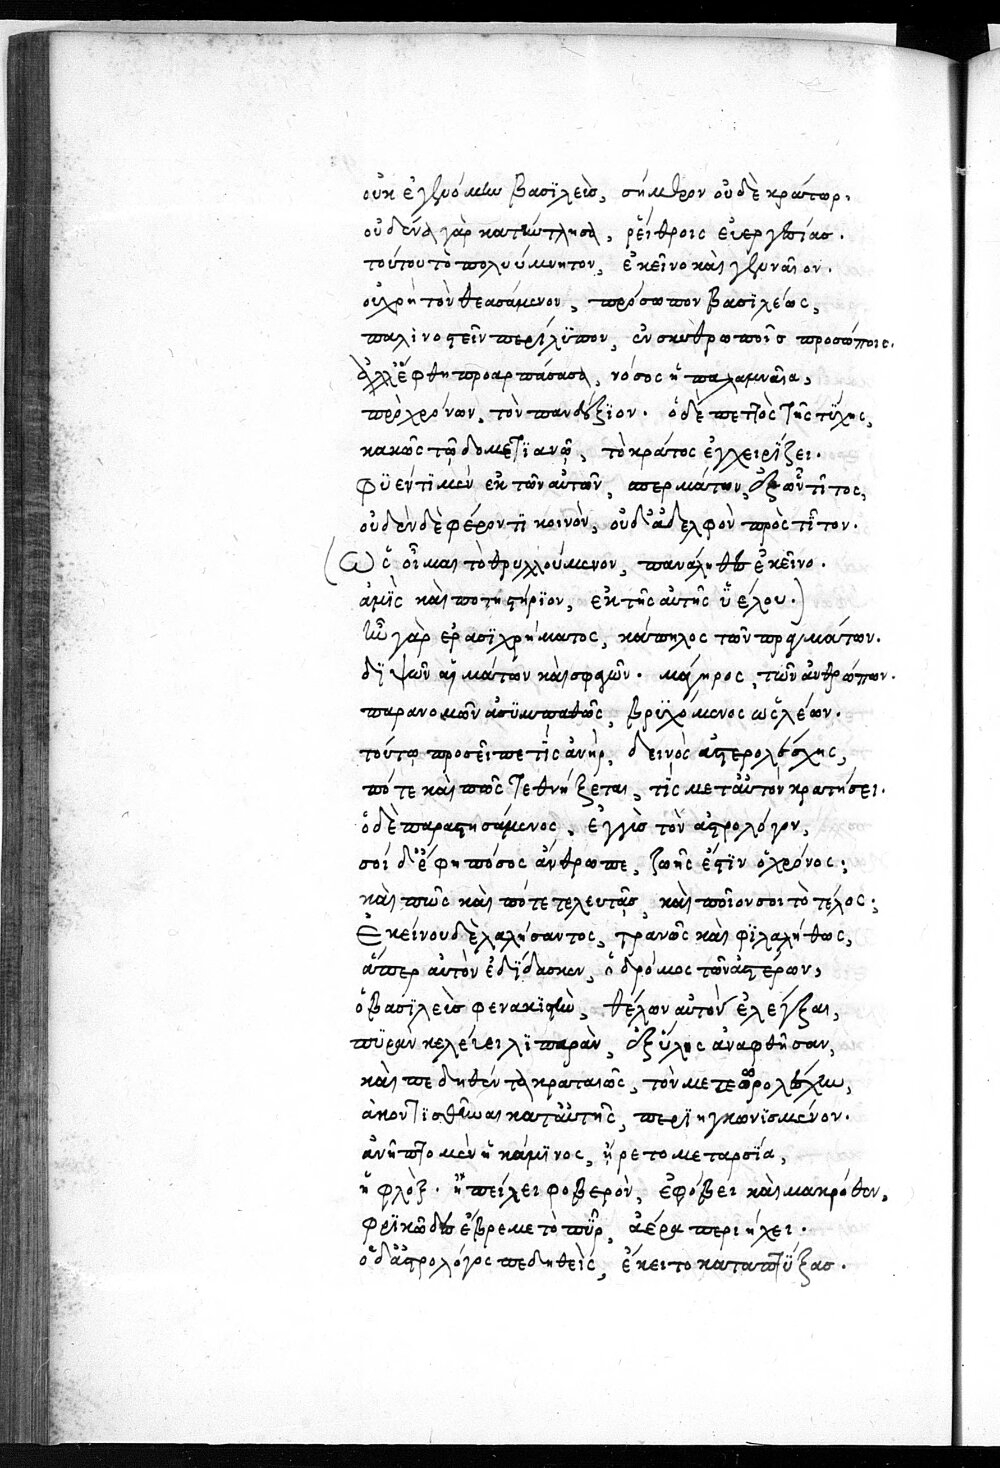 οὐκ ἐγενόμην βασιλεὺς, σήμερον οὐδὲ κράτωρ.
οὐδένα γὰρ κατήντλησα, ῥείθροις εὐεργεσίας.
τοῦτου τὸ πολυύμνητον, ἐκεῖνο καὶ γενναῖον.
οὐ χρὴ τὸν θεασάμενον, πρόσωπον βασιλέως,
παλινοστεῖν περίλυπον, ἐν σκυθρωποῖς προσώποις.
ἀλλ' ἔφθη προαρπάσασα, νόσος ἡ παλαμναία,
πρὸ χρόνων, τὸν πανάξιον. ὁ δὲ πεττὸς τῆς τύχης,
κακῶς τῷ δομετιανῷ, τὸ κράτος ἐγχειρίζει.
φυέντι μὲν ἐκ τῶν αὐτῶν, σπερμάτων, ἐξ ὧν τῖτος,
οὐδὲν δὲ φέροντι κοινὸν, οὐδ' ἀδελφὸν πρὸς τῖτον.
(Ὡς οἶμαι τὸ θρυλλούμενον, παναληθὲς ἐκεῖνο.
ἀμὶς καὶ ποτηστήριον, ἐκ τῆς αὐτῆς ὑέλου.)
Ἦν γὰρ ἐρασιχρήματος, κάπηλος τῶν πραγμάτων.
διψῶν αἱμάτων καὶ σφαγῶν. μάγηρος, τῶν ἀνθρώπων.
παρανομῶν ἀσυμπαθῶς, βρυχόμενος ὡς λέων.
τούτῳ προσεῖπε τίς ἀνὴρ, δεινὸς ἀστερολέσχης,
πότε καὶ πῶς τεθνήξεται, τίς μετ' αὐτὸν κρατήσει.
ὁ δὲ παραστησάμενος, ἐγγὺς τὸν ἀστρολόγον,
σοί δ' ἔφη πόσος ἄνθρωπε, ζωῆς ἐστὶν ὁ χρόνος;
καὶ πῶς καὶ πότε τελευτᾷς, καὶ ποῖον σοι τὸ τέλος;
Ἐκείνου δὲ λαλήσαντος, τρανῶς καὶ φιλαλήθως,
ἅπερ αὐτὸν ἐδίδασκεν, ὁ δρόμος τῶν ἀστέρων,
ὁ βασιλεὺς φενακιστὴν, θέλων αὐτὸν ἐλέγξαι,
πυρὰν κελεύει λιπαρὰν, ἐξ ὕλης ἀναφθῆσαν,
καὶ πεδηθέντα κραταιῶς, τὸν μετεωρολέσχην,
ἀκοντισθῆναι κατ' αὐτῆς, περιηγκωνισμένον.
ἀνήπτο μὲν ἡ κάμινος, ᾔρετο μεταρσία,
ἡ φλὸξ. ἠπείλει φοβερὸν, ἐφόβει καὶ μακρόθεν,
φρικῶδες ἔβρεμε τὸ πῦρ, ἀέρα περιήχει.
ὁ δ' ἀστρολόγος πεδηθεὶς, ἔκειτο καταπτύξας.